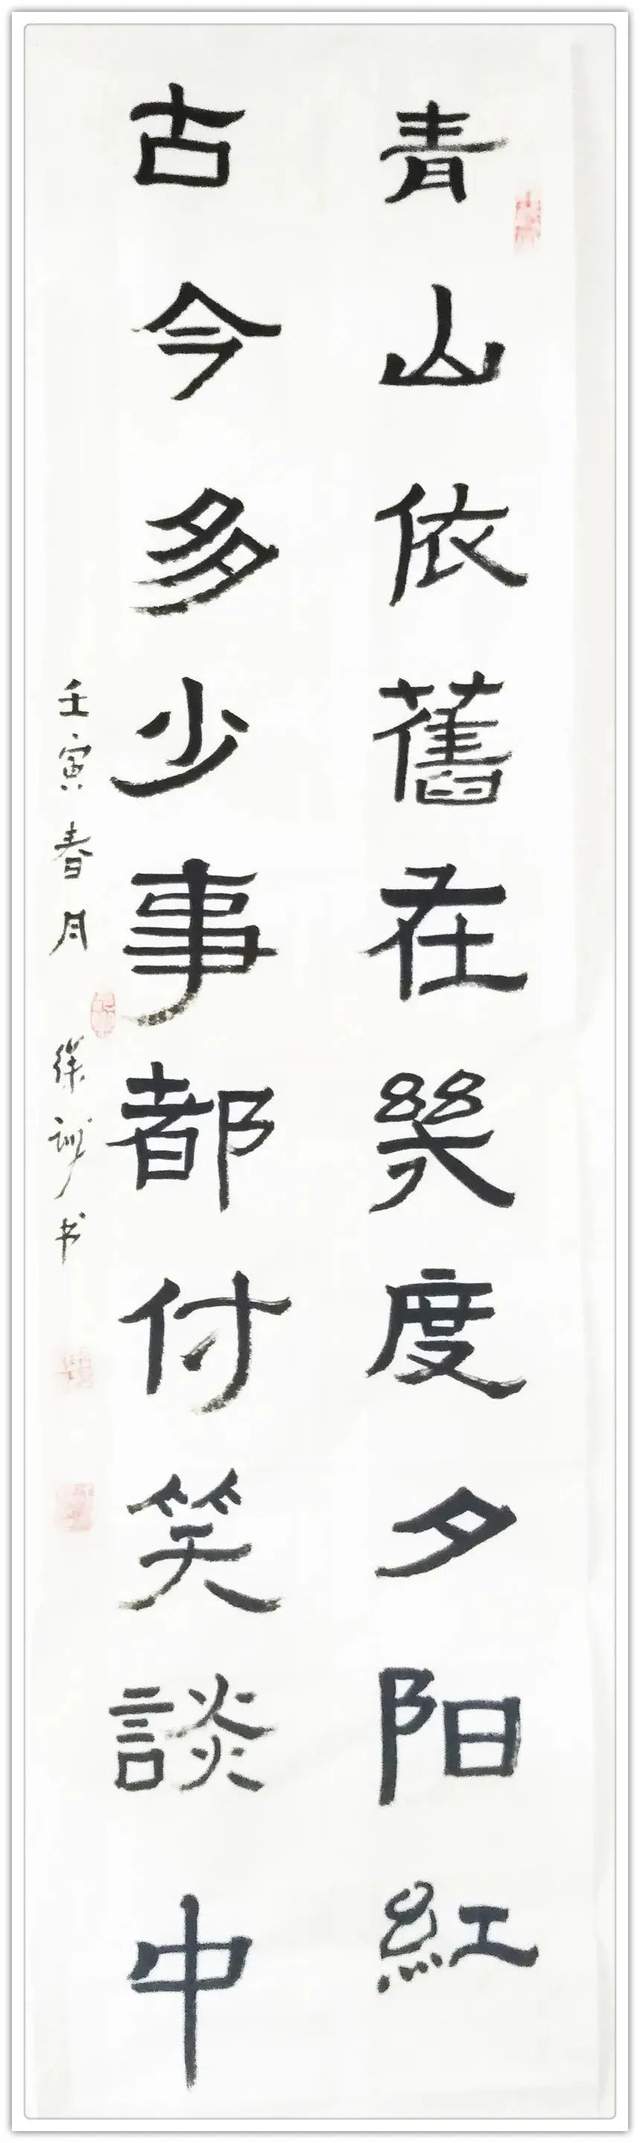 青山依舊在幾度夕阳紅
古今多少事都付笑談中
壬寅春月 徐诚书